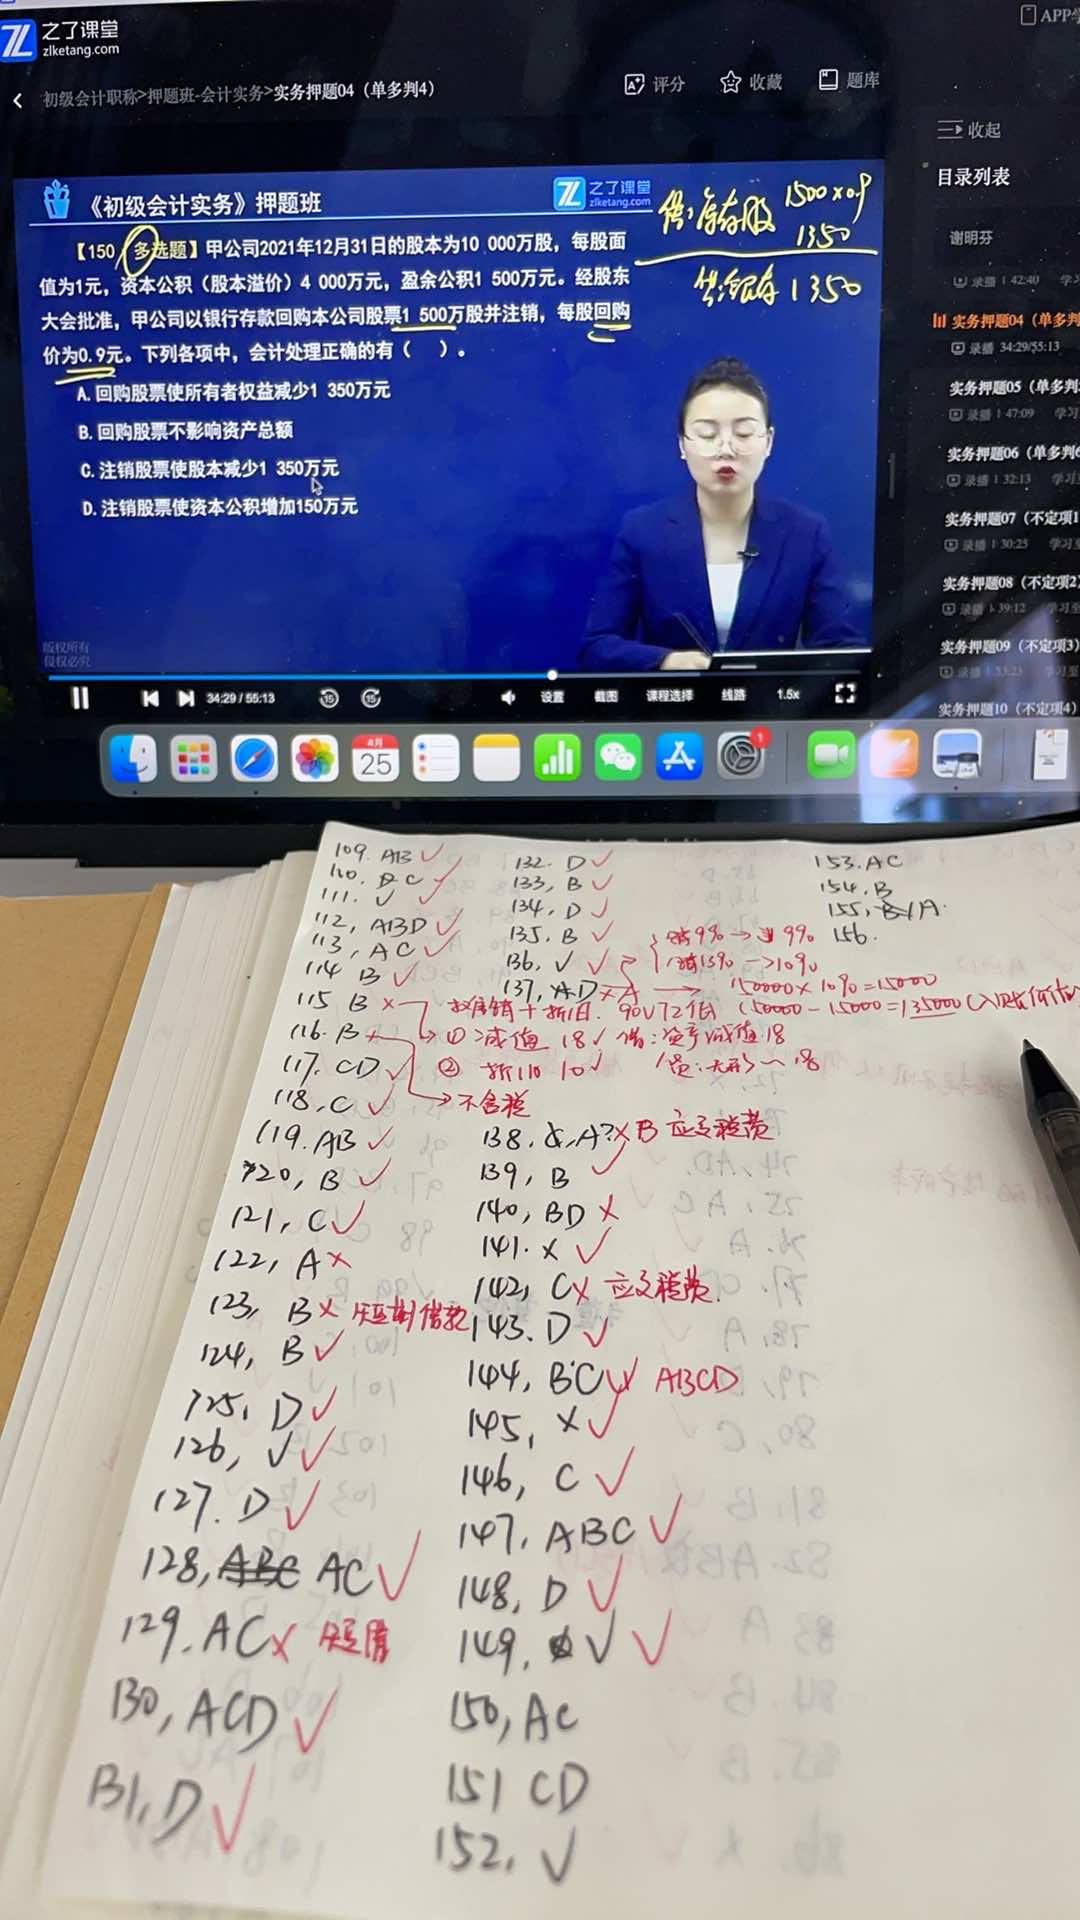 之了课堂
zlketang.com
APP学
初级会计职称>押题班-会计实务>实务押题04（单多判4）
评分
收藏
题库
收起
目录列表
谢明芬
录播 | 42:40 学习
实务押题04（单多判
录播 34:29/55:13
实务押题05（单多判
录播 | 47:09 学习
实务押题06（单多判6
录播 | 32:13 学习
实务押题07（不定项1
录播 | 30:25 学习至
实务押题08（不定项2
录播 | 39:12 学习至
实务押题09（不定项3）
录播 | 53:23 学习至
实务押题10（不定项4）
《初级会计实务》押题班
之了课堂
zlketang.com
借:库存股 1500×0.9
1350
贷:银存 1350
【150 多选题】甲公司2021年12月31日的股本为10 000万股，每股面
值为1元，资本公积（股本溢价）4 000万元，盈余公积1 500万元。经股东
大会批准，甲公司以银行存款回购本公司股票1 500万股并注销，每股回购
价为0.9元。下列各项中，会计处理正确的有（ ）。
A. 回购股票使所有者权益减少1 350万元
B. 回购股票不影响资产总额
C. 注销股票使股本减少1 350万元
D. 注销股票使资本公积增加150万元
版权所有
侵权必究
34:29 / 55:13
15
15
设置
截图
课程选择
线路
1.5x
4月
25
1
109. AB ✓
110. BC ✓
111. ✓ ✓
112, ABD ✓
113, AC ✓
114 B ✓
115 B ×
116. B ×
① 减值 18 ✓ 借:资产减值 18
② 折旧 10 ✓
不含税
117. CD ✓
118, C ✓
119. AB ✓
120, B ✓
121, C ✓
122, A ×
123, B × 短期借款
124, B ✓
125, D ✓
126, ✓ ✓
127. D ✓
128, ABC AC ✓
129. AC ×
130, ACD ✓
131, D ✓
132. D ✓
133, B ✓
134, D ✓
135, B ✓
136, ✓ ✓
9% → 9%
13% → 10%
137, AD × A → 150000×10%=15000
150000-15000=135000
138, A? × B 应交税费
139, B ✓
140, BD ×
141. × ✓
142, C × 应交税费
143. D ✓
144, BC ABCD
145, × ✓
146, C ✓
147, ABC ✓
148, D ✓
149, ✓ ✓
150, AC
151 CD
152. ✓
153. AC
154. B
155, B A.
156.